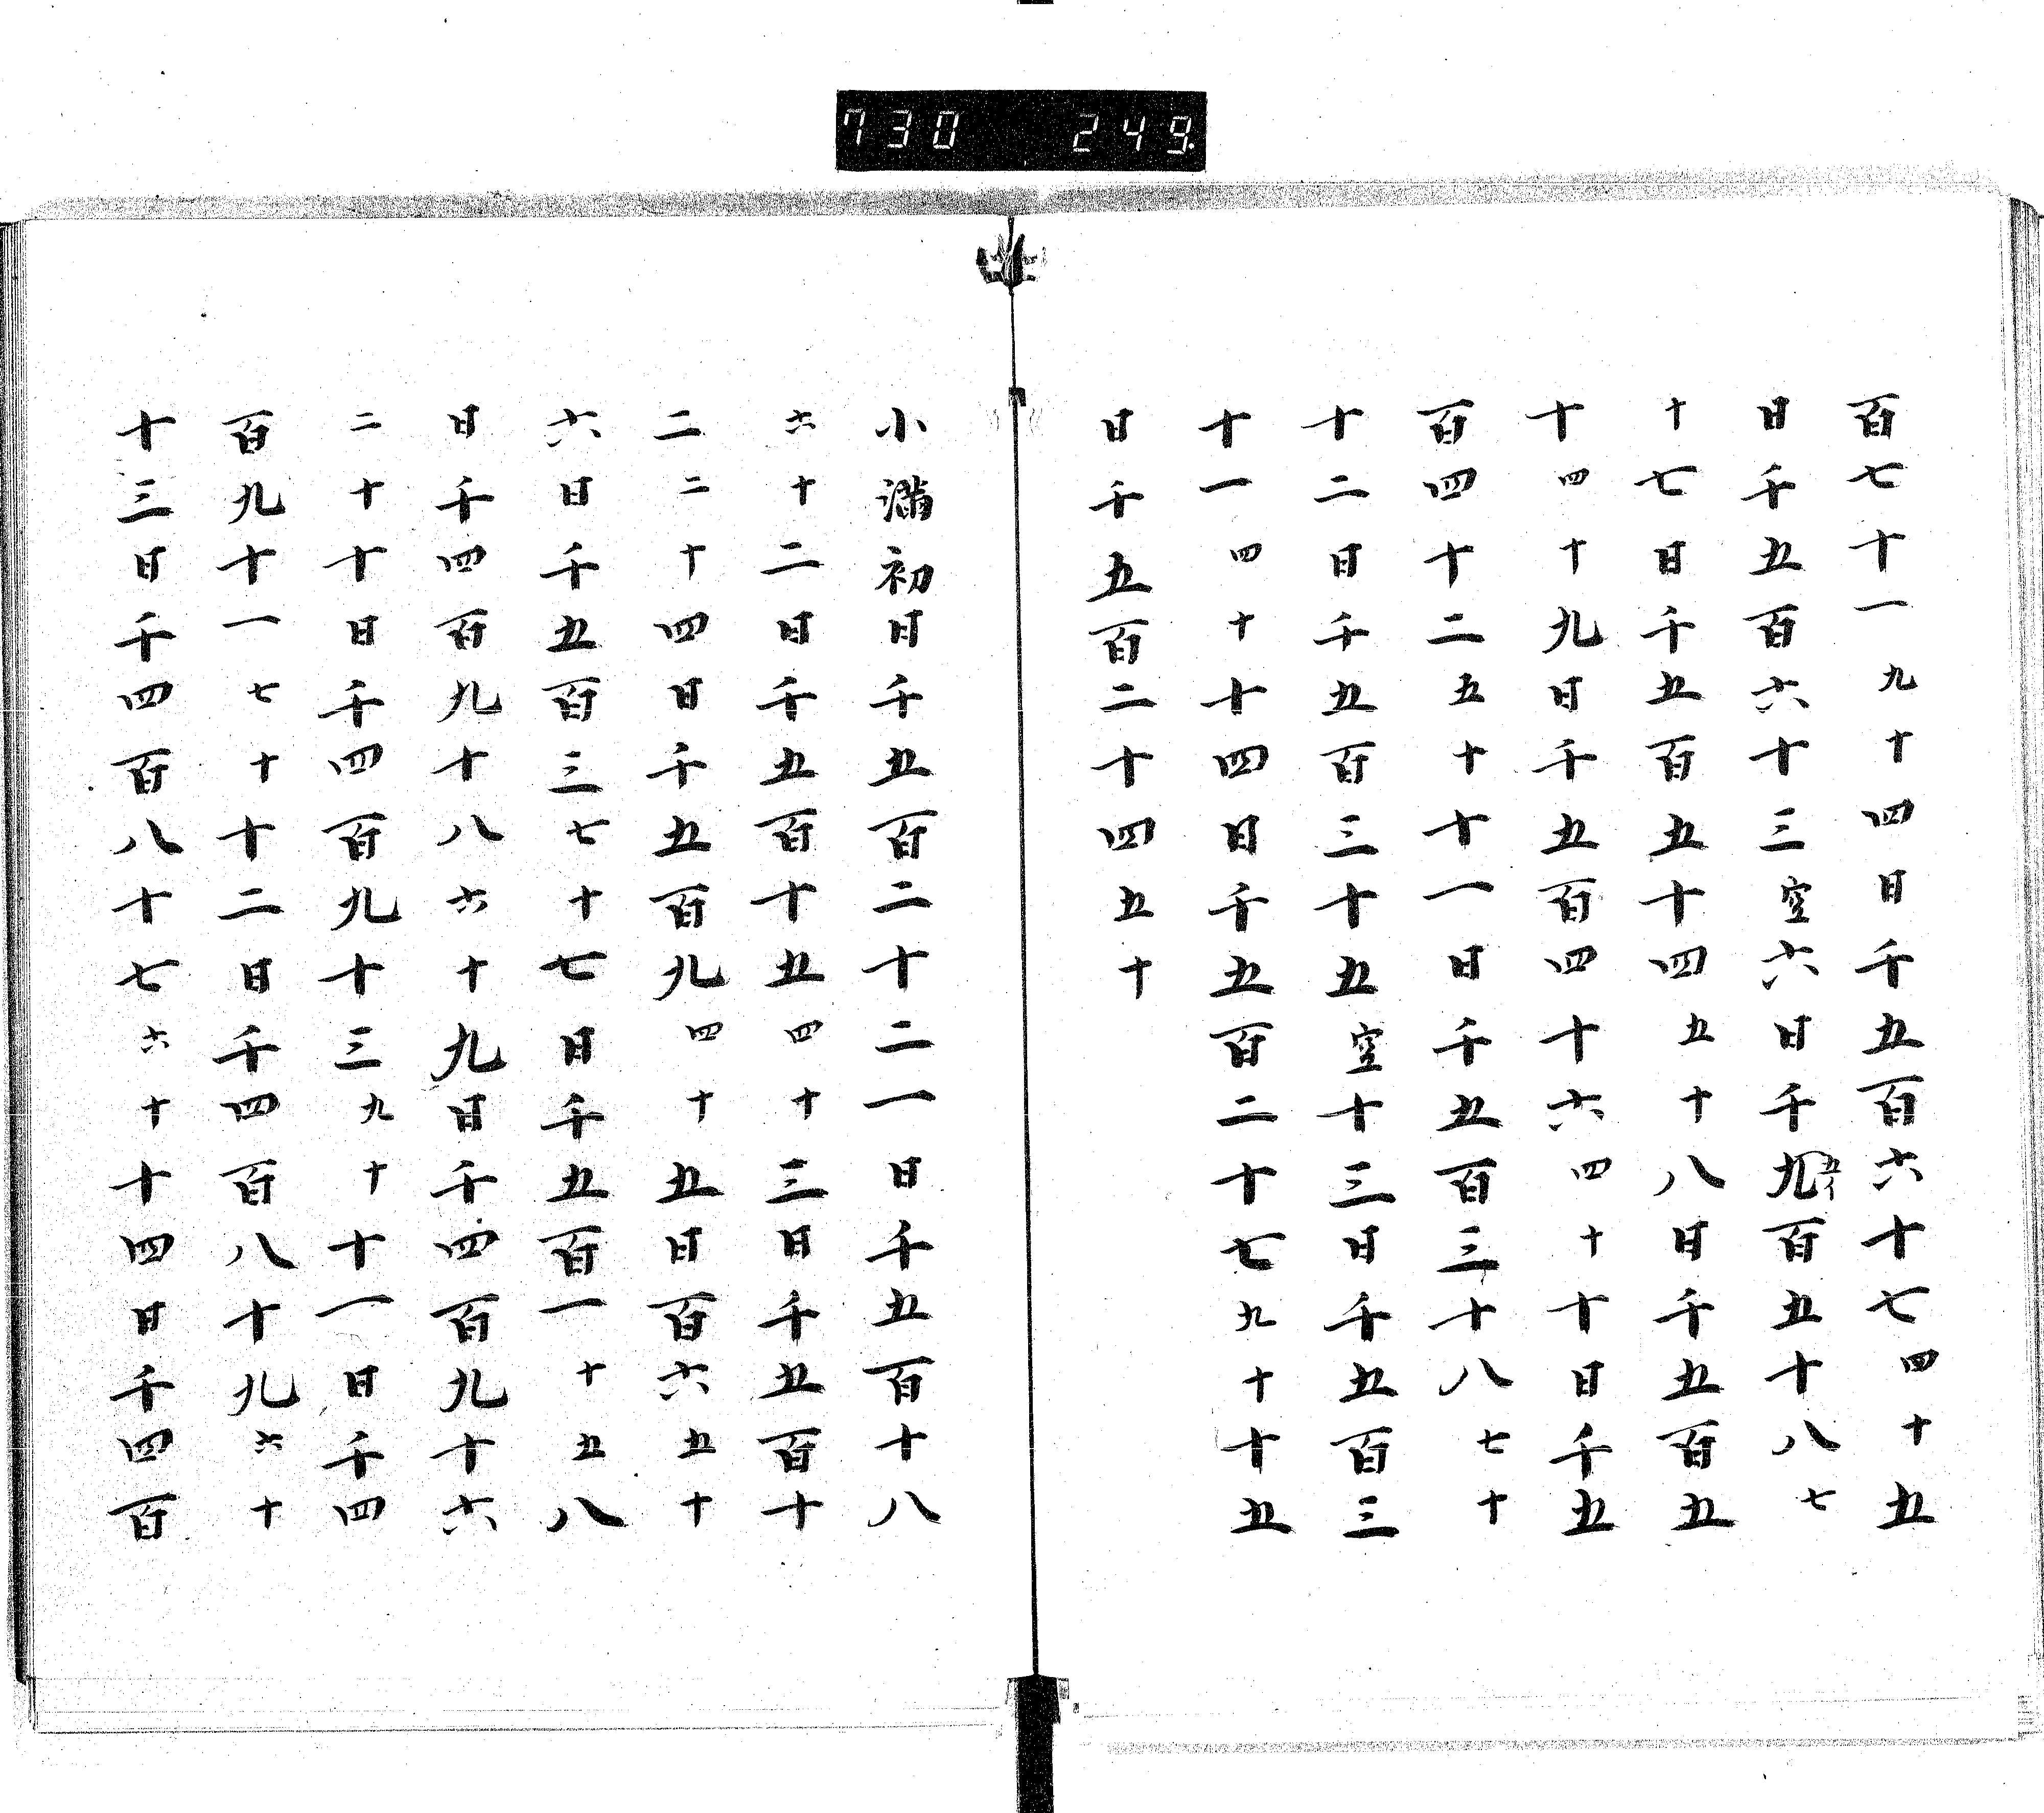 730 249
百七十一九十四日千五百六十七四十五
日千五百六十三空六日千九五イ百五十八七
十七日千五百五十四五十八日千五百五
十四十九日千五百四十六四十十日千五
百四十二五十十一日千五百三十八七十
十二日千五百三十五空十三日千五百三
十一四十十四日千五百二十七九十十五
日千五百二十四五十
小滿初日千五百二十二一日千五百十八
六十二日千五百十五四十三日千五百十
二二十四日千五百九四十五日百六五十
六日千五百三七十七日千五百一十五八
日千四百九十八六十九日千四百九十六
二十十日千四百九十三九十十一日千四
百九十一七十十二日千四百八十九六十
十三日千四百八十七六十十四日千四百